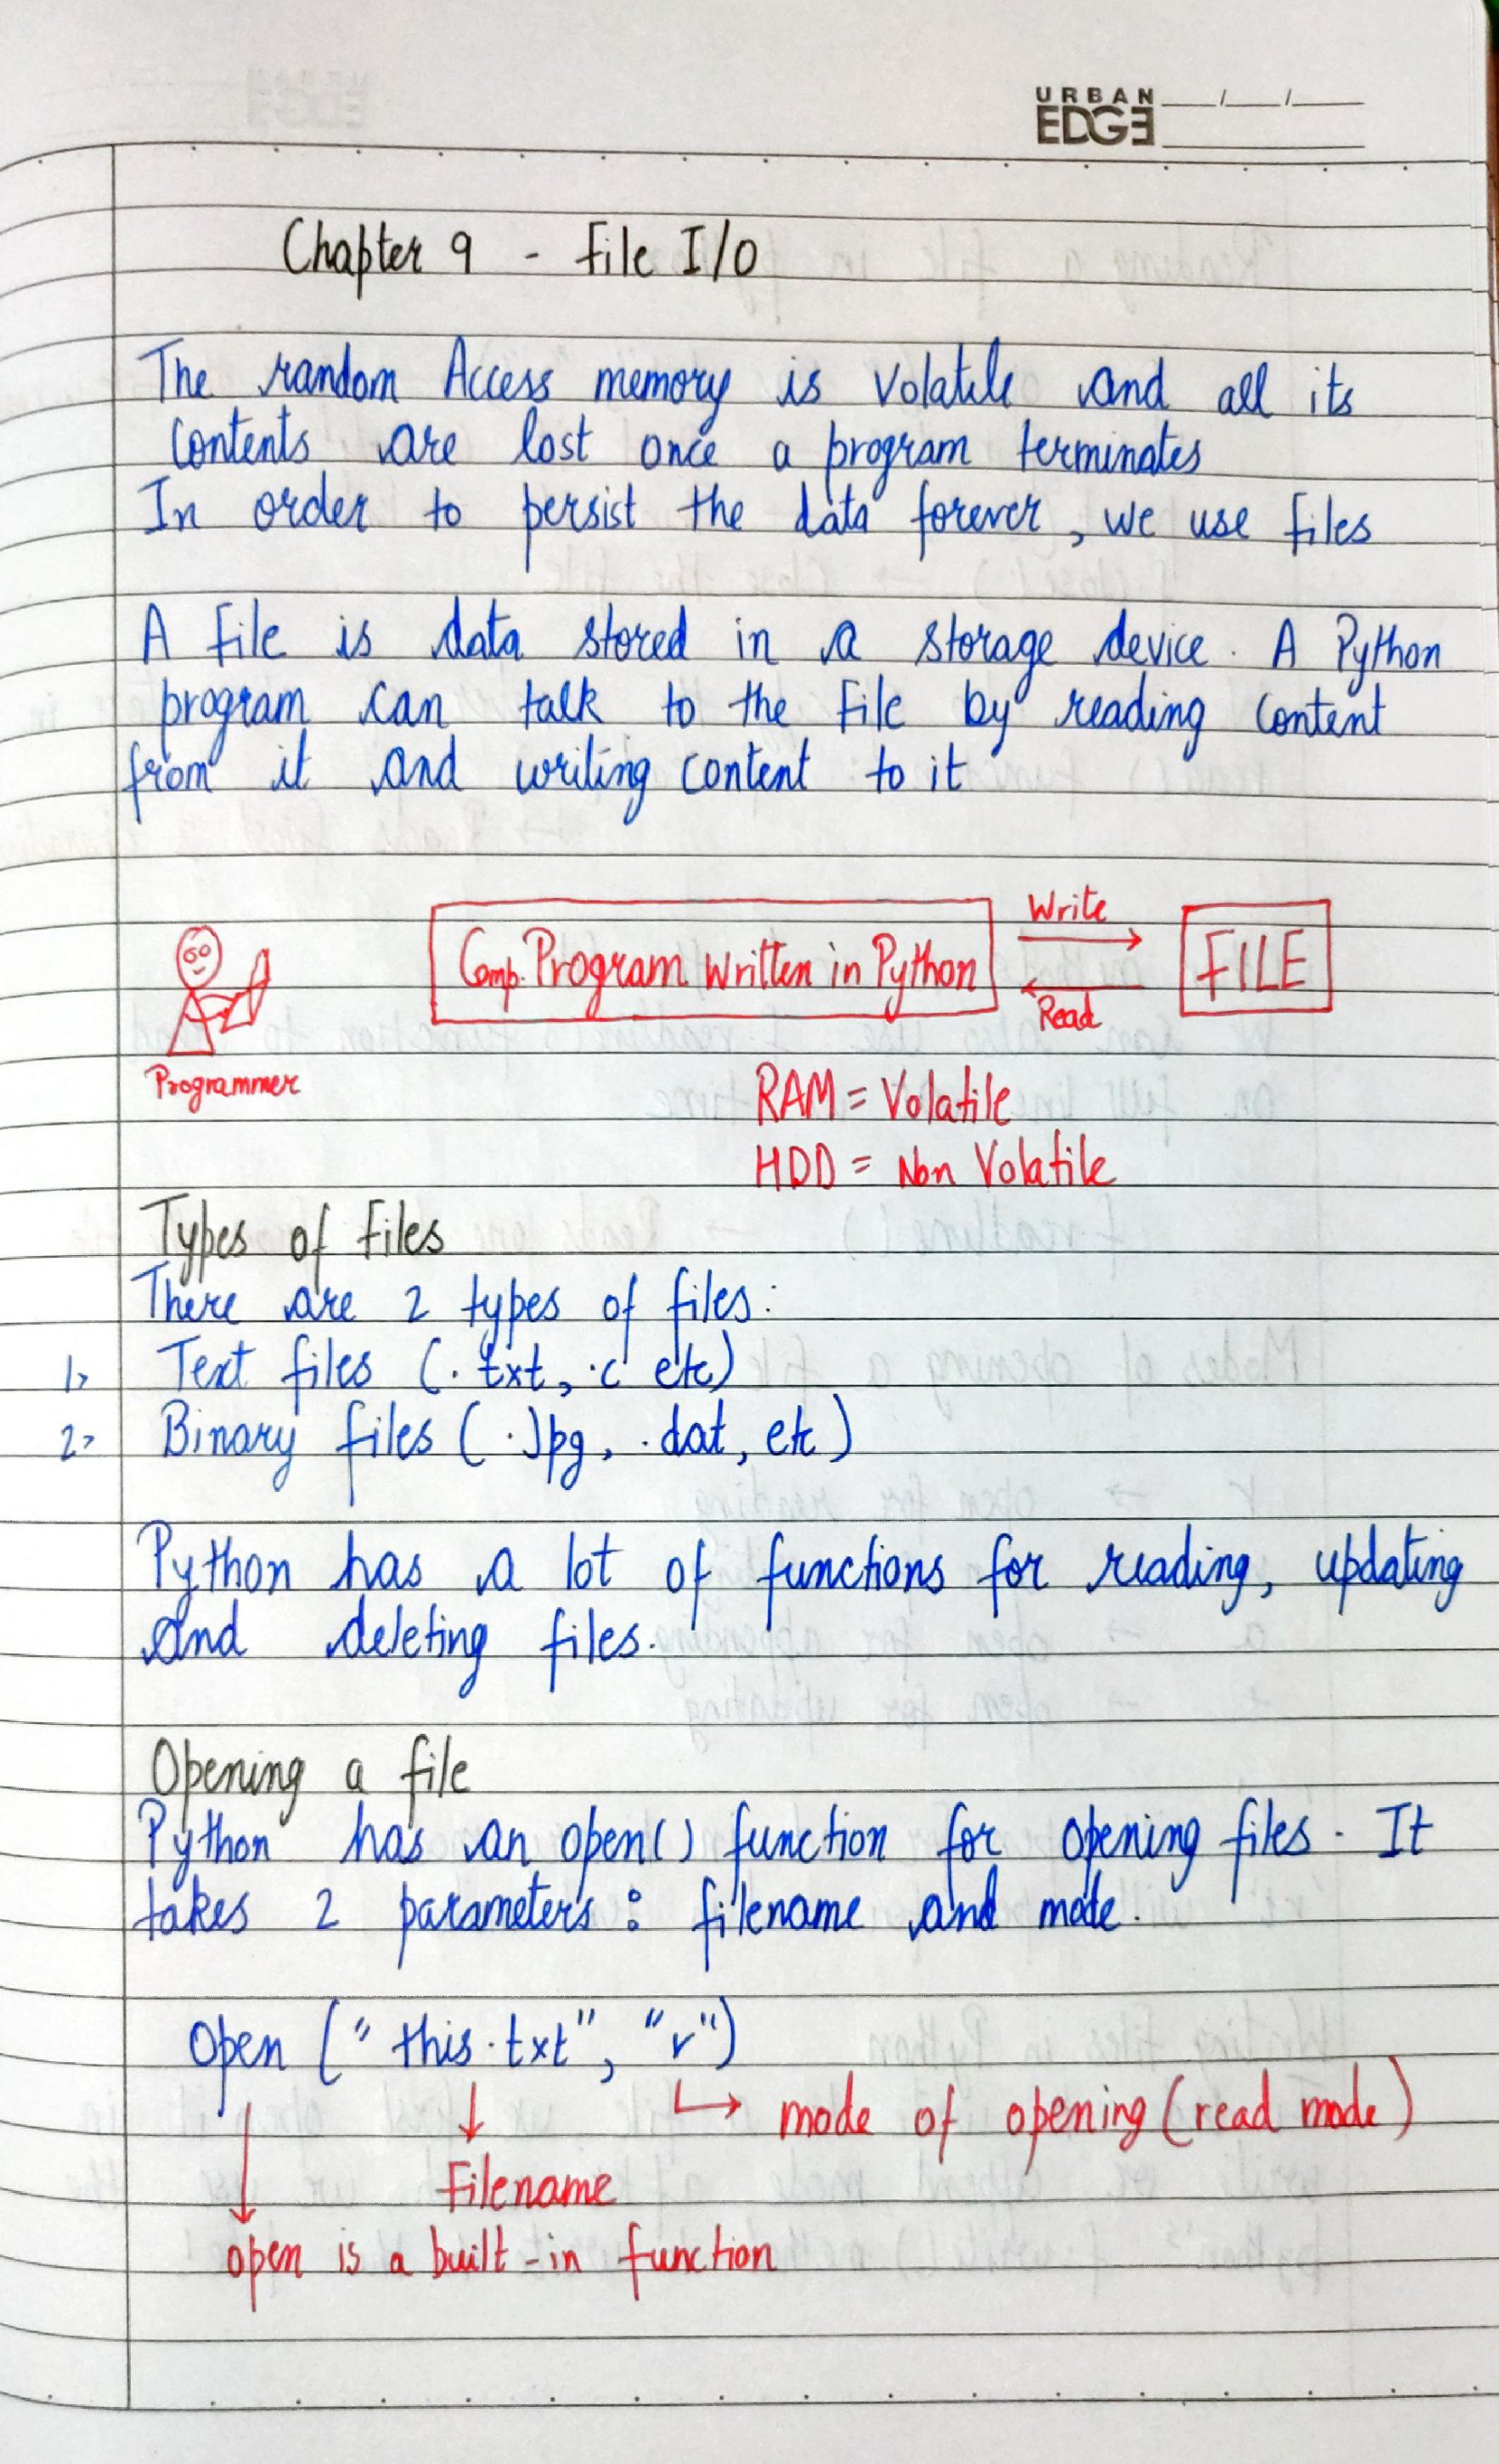 URBAN
EDGE
Chapter 9 - File I/O
The random Access memory is volatile and all its
contents are lost once a program terminates
In order to persist the data forever, we use files
A file is data stored in a storage device. A Python
program can talk to the file by reading content
from it and writing content to it
Write
Comp. Program Written in Python
FILE
Read
Programmer
RAM = Volatile
HDD = Non Volatile
Types of Files
There are 2 types of files:
1> Text files (.txt, .c etc)
2> Binary files (.Jpg, .dat, etc)
Python has a lot of functions for reading, updating
and deleting files.
Opening a file
Python has an open() function for opening files. It
takes 2 parameters: filename and mode.
Open ("this.txt", "r")
mode of opening (read mode)
Filename
open is a built-in function